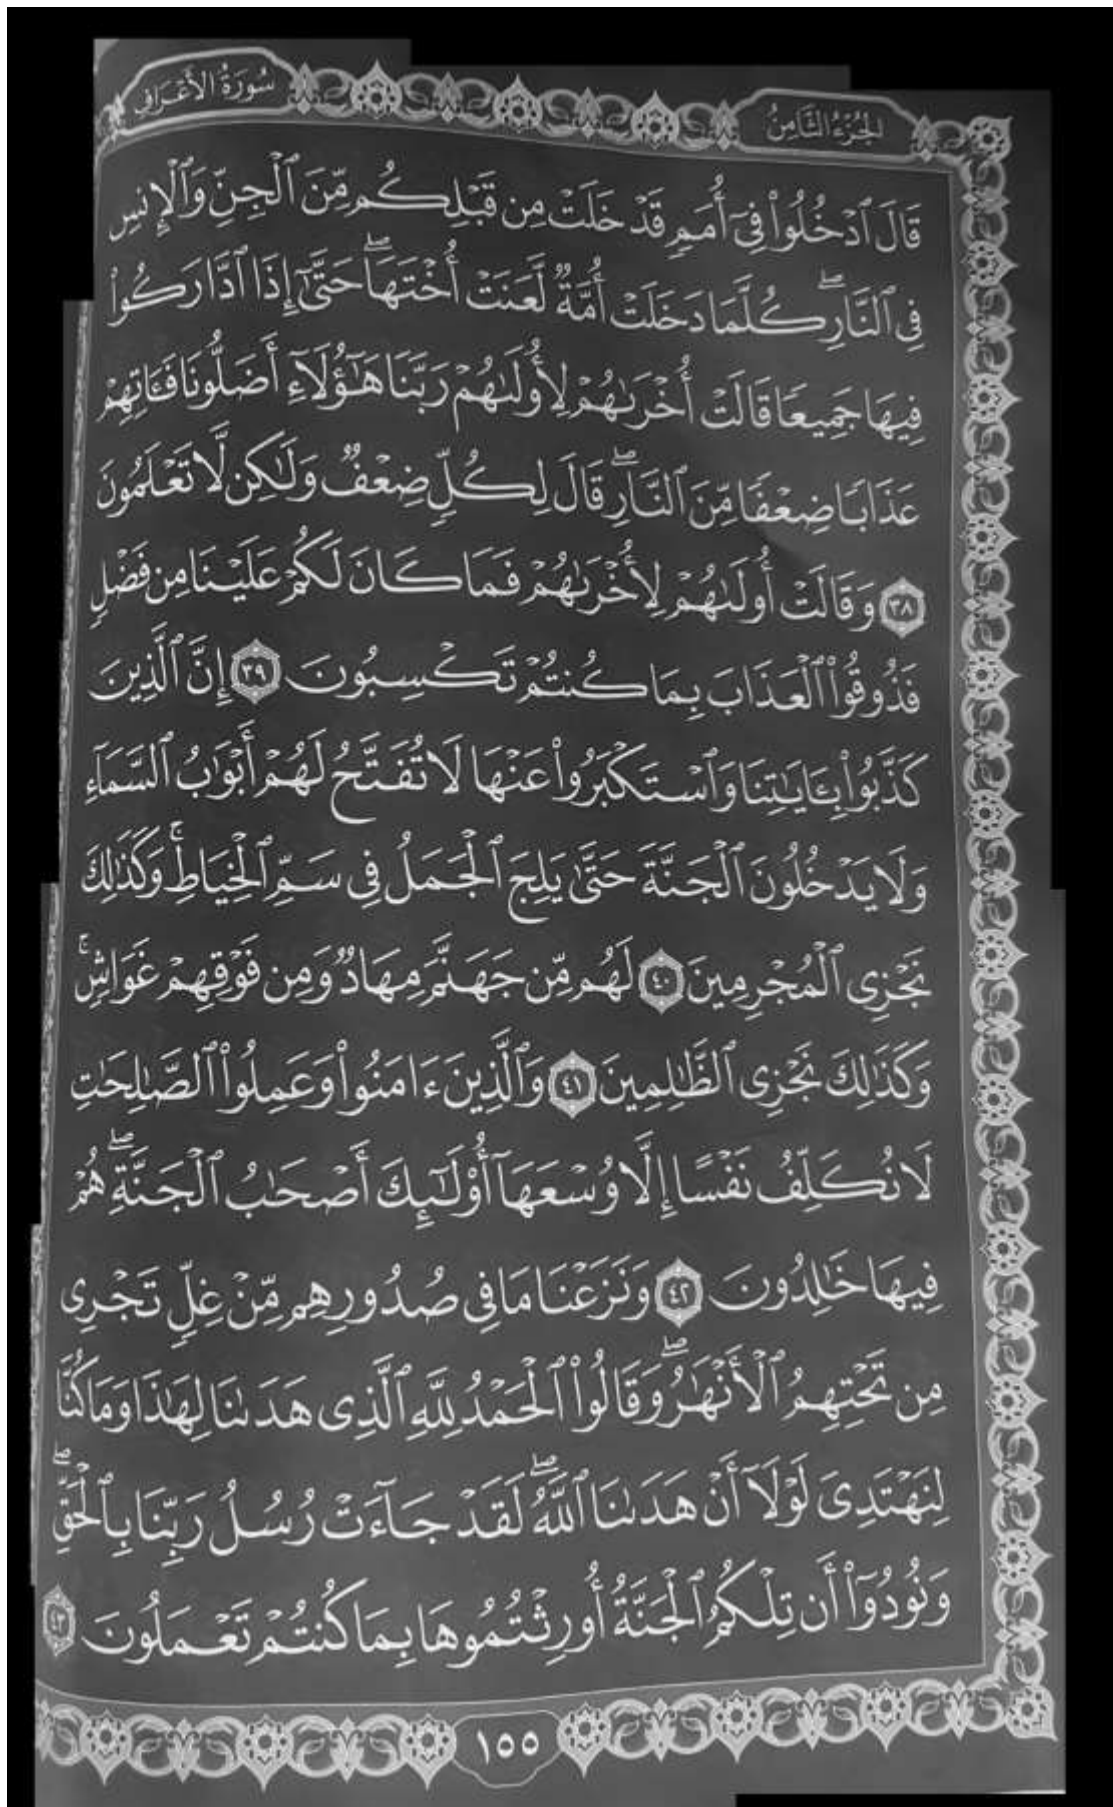 سُورَةُ الأَعْرَافِ
الجُزْءُ الثَّامِنُ
قَالَ ٱدْخُلُوا۟ فِىٓ أُمَمٍ قَدْ خَلَتْ مِن قَبْلِكُم مِّنَ ٱلْجِنِّ وَٱلْإِنسِ
فِى ٱلنَّارِ ۖ كُلَّمَا دَخَلَتْ أُمَّةٌ لَّعَنَتْ أُخْتَهَا ۖ حَتَّىٰٓ إِذَا ٱدَّارَكُوا۟
فِيهَا جَمِيعًا قَالَتْ أُخْرَىٰهُمْ لِأُولَىٰهُمْ رَبَّنَا هَـٰٓؤُلَآءِ أَضَلُّونَا فَـَٔاتِهِمْ
عَذَابًا ضِعْفًا مِّنَ ٱلنَّارِ ۖ قَالَ لِكُلٍّ ضِعْفٌ وَلَـٰكِن لَّا تَعْلَمُونَ
٣٨ وَقَالَتْ أُولَىٰهُمْ لِأُخْرَىٰهُمْ فَمَا كَانَ لَكُمْ عَلَيْنَا مِن فَضْلٍ
فَذُوقُوا۟ ٱلْعَذَابَ بِمَا كُنتُمْ تَكْسِبُونَ ٣٩ إِنَّ ٱلَّذِينَ
كَذَّبُوا۟ بِـَٔايَـٰتِنَا وَٱسْتَكْبَرُوا۟ عَنْهَا لَا تُفَتَّحُ لَهُمْ أَبْوَٰبُ ٱلسَّمَآءِ
وَلَا يَدْخُلُونَ ٱلْجَنَّةَ حَتَّىٰ يَلِجَ ٱلْجَمَلُ فِى سَمِّ ٱلْخِيَاطِ ۚ وَكَذَٰلِكَ
نَجْزِى ٱلْمُجْرِمِينَ ٤٠ لَهُم مِّن جَهَنَّمَ مِهَادٌ وَمِن فَوْقِهِمْ غَوَاشٍ ۚ
وَكَذَٰلِكَ نَجْزِى ٱلظَّـٰلِمِينَ ٤١ وَٱلَّذِينَ ءَامَنُوا۟ وَعَمِلُوا۟ ٱلصَّـٰلِحَـٰتِ
لَا نُكَلِّفُ نَفْسًا إِلَّا وُسْعَهَآ أُو۟لَـٰٓئِكَ أَصْحَـٰبُ ٱلْجَنَّةِ ۖ هُمْ
فِيهَا خَـٰلِدُونَ ٤٢ وَنَزَعْنَا مَا فِى صُدُورِهِم مِّنْ غِلٍّ تَجْرِى
مِن تَحْتِهِمُ ٱلْأَنْهَـٰرُ ۖ وَقَالُوا۟ ٱلْحَمْدُ لِلَّهِ ٱلَّذِى هَدَىٰنَا لِهَـٰذَا وَمَا كُنَّا
لِنَهْتَدِىَ لَوْلَآ أَنْ هَدَىٰنَا ٱللَّهُ ۖ لَقَدْ جَآءَتْ رُسُلُ رَبِّنَا بِٱلْحَقِّ ۖ
وَنُودُوٓا۟ أَن تِلْكُمُ ٱلْجَنَّةُ أُورِثْتُمُوهَا بِمَا كُنتُمْ تَعْمَلُونَ ٤٣
١٥٥